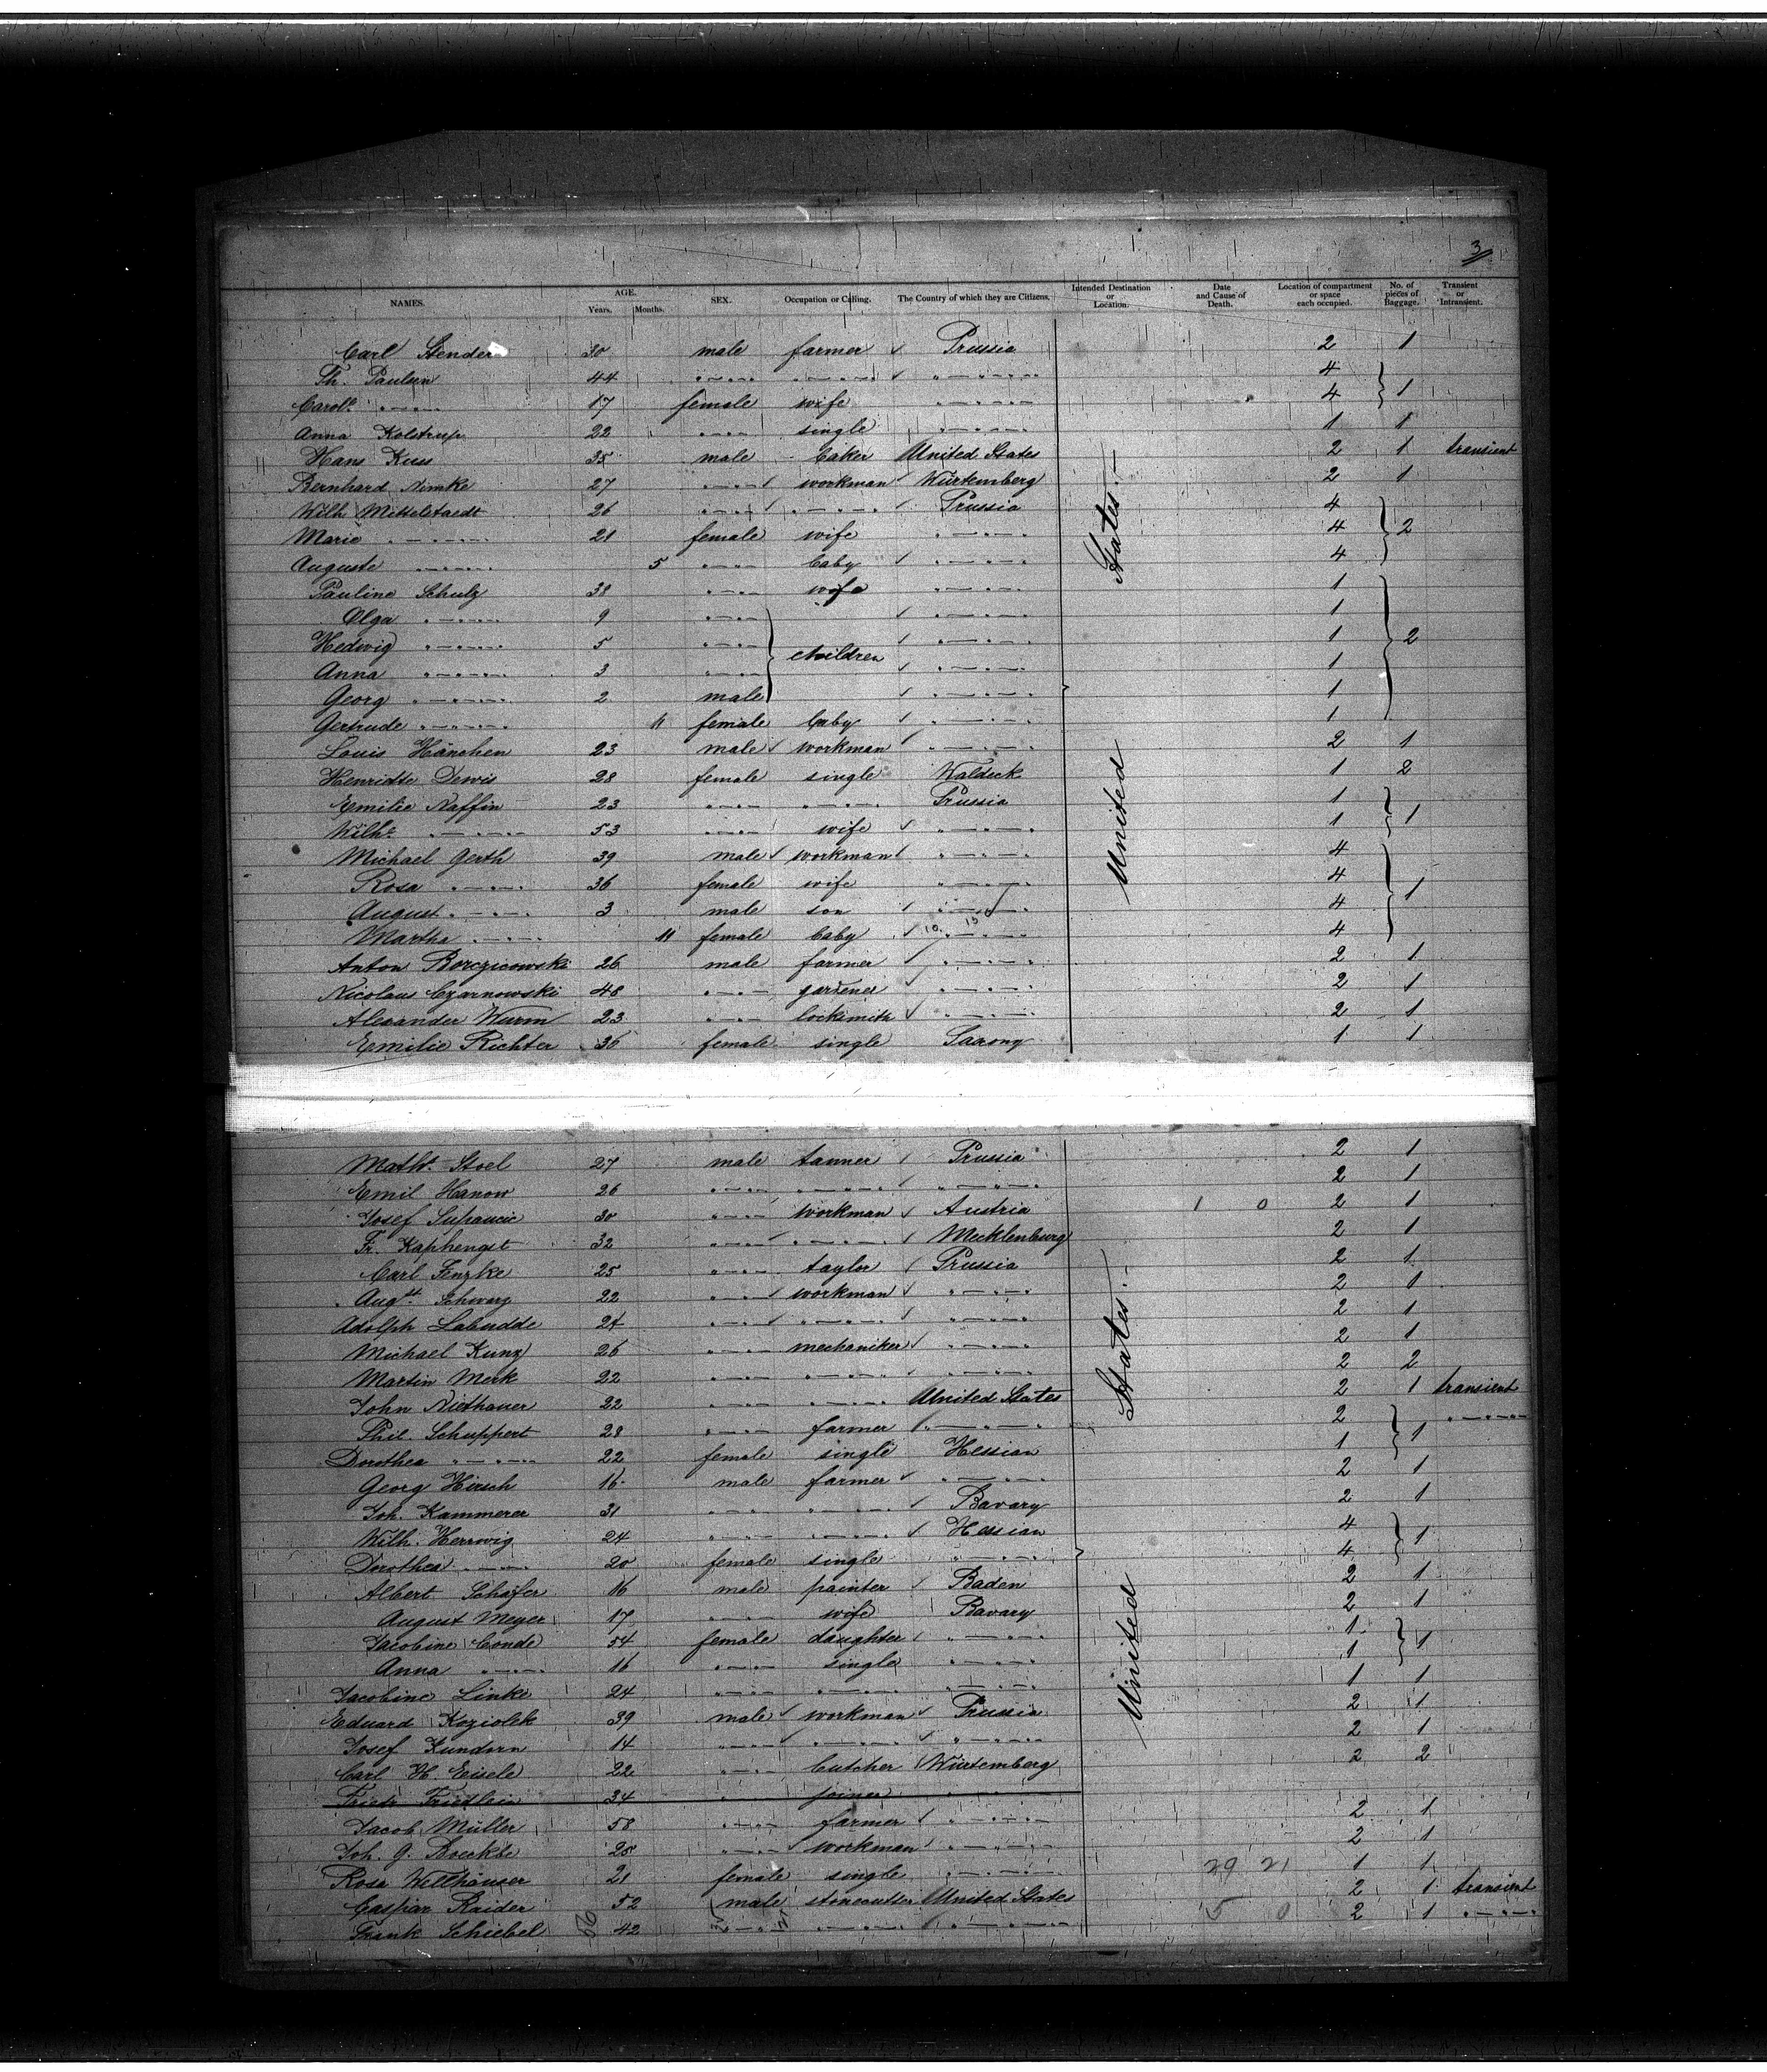 3
NAMES. AGE. Years. Months. SEX. Occupation or Calling. The Country of which they are Citizens. Intended Destination or Location. Date and Cause of Death. Location of compartment or space each occupied. No. of pieces of Baggage. Transient or Intransient.
Carl Stender 30 male farmer Prussia 2 1
Th. Paulsen 44 " " " 4
Carol. " 17 female wife " 4 1
Anna Kolstrup 22 " single " 1 1
Hans Kuss 35 male baker United States 2 1 transient
Bernhard Nimke 27 " workman Würtemberg 2 1
Wilh. Mittelstaedt 26 " " Prussia 4
Marie " 21 female wife " 4 2
Auguste " 5 " baby " 4
Pauline Schulz 38 " wife " 1
Olga " 9 " " 1
Hedwig " 5 " " 1 2
Anna " 3 " children " 1
Georg " 2 male " 1
Gertrude " 11 female baby " 1
Louis Hänchen 23 male workman " 2 1
Henriette Dewis 28 female single Waldeck 1 2
Emilie Naffin 23 " " Prussia 1
Wilh. " 53 " wife " 1 1
Michael Gerth 39 male workman " 4
Rosa " 36 female wife " 4 1
August " 3 male son " 4
Martha " 11 female baby " 4
Anton Borczicowski 26 male farmer " 2 1
Nicolaus Czarnowski 48 " gardener " 2 1
Alexander Wurm 23 " locksmith " 2 1
Emilie Richter 36 female single Saxony 1 1
United States.
Math. Stoel 27 male tanner Prussia 2 1
Emil Hanow 26 " " " 2 1
Josef 30 " workman Austria 1 0 2 1
Fr. Kaphengst 32 " " Mecklenburg 2 1
Carl Fenzke 25 " taylor Prussia 2 1
Augst. Schwarz 22 " workman " 2 1
Adolph Labudde 24 " " " 2 1
Michael Kunz 26 " mechaniker " 2 1
Martin Merk 22 " " " 2 2
John Niethauer 22 " " United States 2 1 transient
Phil. Schuppert 28 " farmer " 2 1 "
Dorothea " 22 female single Hessian 1
Georg Hirsch 16 male farmer " 2 1
Joh. Kammerer 31 " " Bavary 2 1
Wilh. Herrwig 24 " " Hessian 4 1
Dorothea " 20 female single " 4
Albert Schäfer 16 male painter Baden 2 1
August Meyer 17 " wife Bavary 2 1
Jacobine Conde 54 female daughter " 1 1
Anna " 16 " single " 1
Jacobine Linke 24 " " " 1 1
Eduard Koziolek 39 male workman Prussia 2 1
Josef Kundorn 14 " " " 2 1
Carl H. Eisele 22 " butcher Würtemberg 2 2
Friedr. Friedlein 34 " joiner "
Jacob Müller 58 " farmer " 2 1
Joh. G. 28 " workman " 2 1
Rosa Wellhäuser 21 female single " 29 21 1 1
Caspar Raider 52 male stonecutter United States 2 1 transient
Frank Schiebel 42 " " " 5 0 2 1 "
United States.